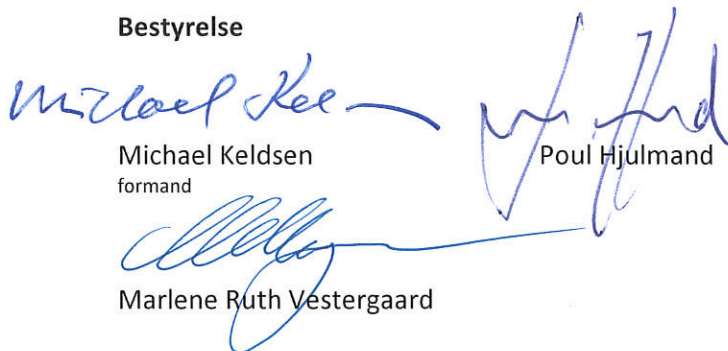 Bestyrelse
Michael Kel
Michael Keldsen
Poul Hjulmand
formand
Marlene Ruth Vestergaard